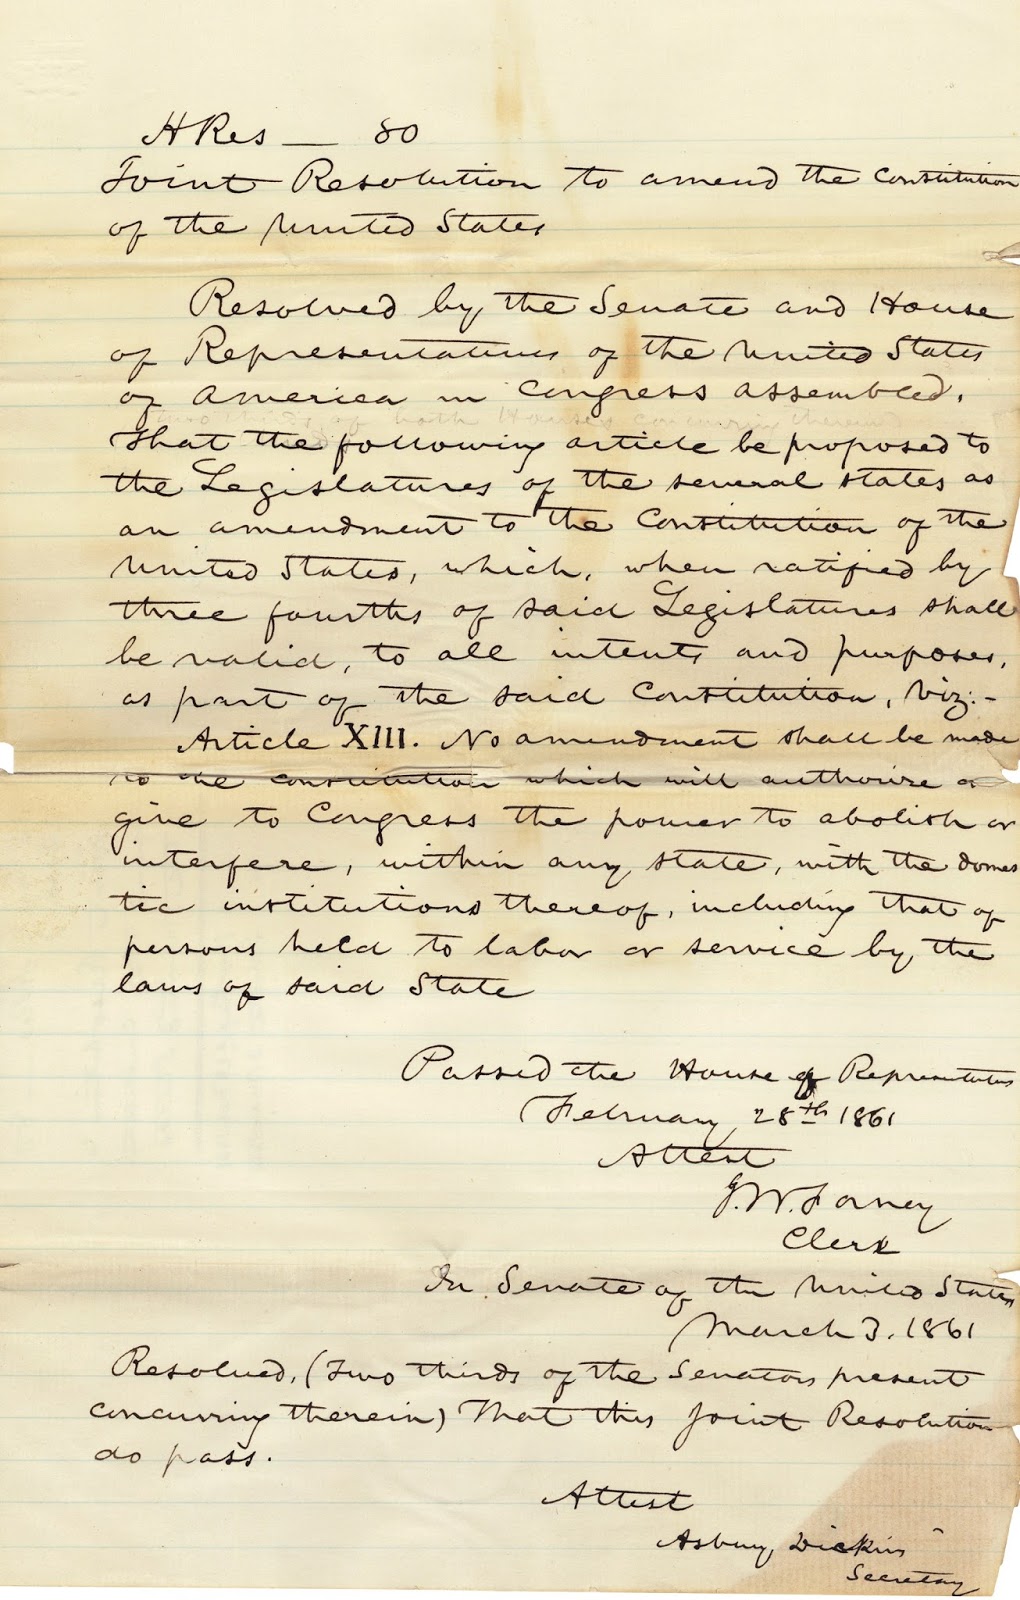 H Res — 80
Joint Resolution to amend the Constitution
of the United States
Resolved by the Senate and House
of Representatives of the United States
of America in Congress assembled,
two thirds of both Houses concurring therein
That the following article be proposed to
the Legislatures of the several states as
an amendment to the Constitution of the
United States, which, when ratified by
three fourths of said Legislatures shall
be valid, to all intents and purposes,
as part of the said Constitution, viz:-
Article XIII. No amendment shall be made
to the constitution which will authorize or
give to Congress the power to abolish or
interfere, within any state, with the domes
tic institutions thereof, including that of
persons held to labor or service by the
laws of said State
Passed the House of Representatives
February 28th 1861
Attest
J. W. Forney
Clerk
In Senate of the United States
March 3. 1861
Resolved, (two thirds of the Senators present
concurring therein) That this Joint Resolution
do pass.
Attest
Asbury Dickins
Secretary